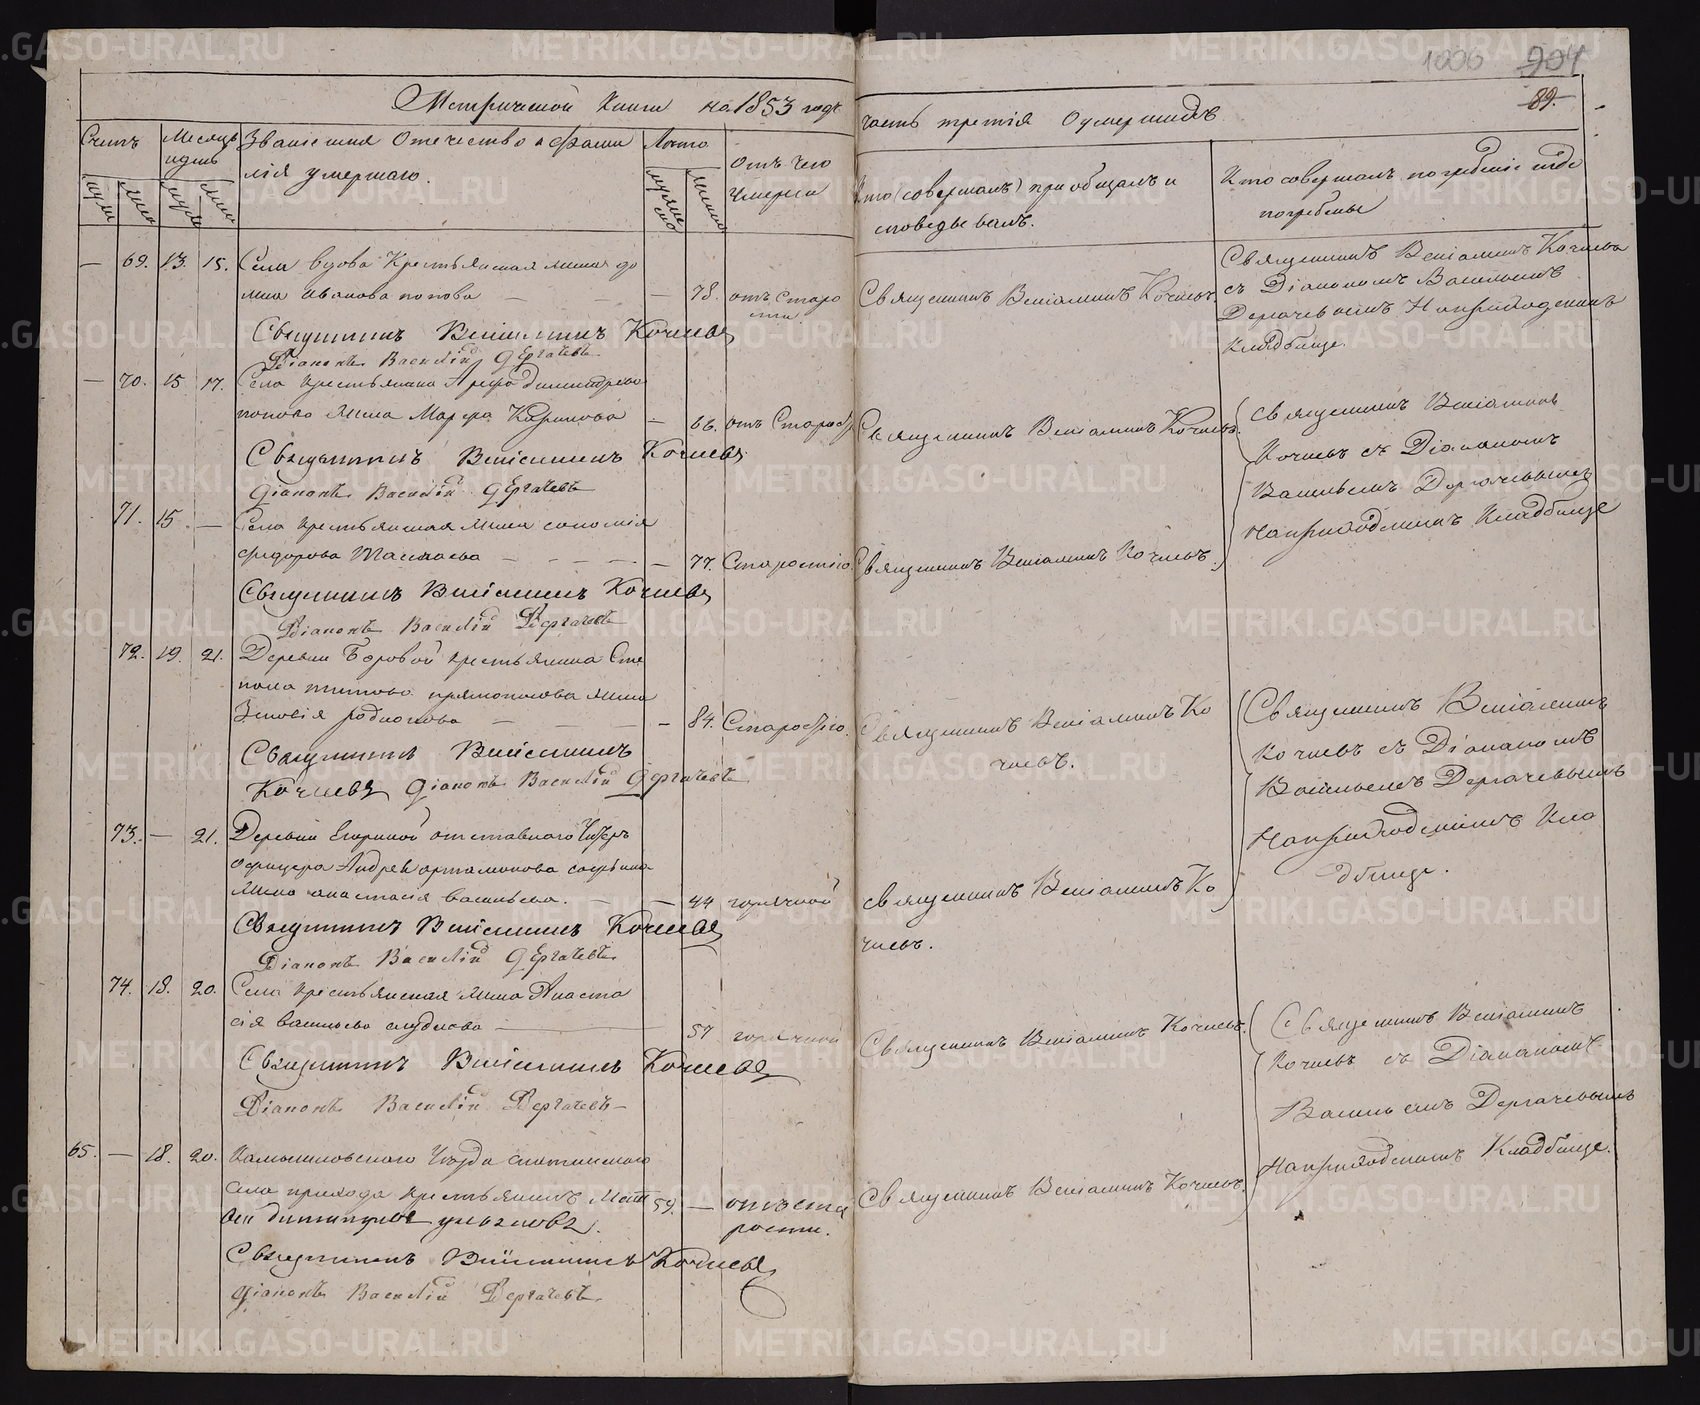 1006 904
89.
Метрической Книги на 1853 годъ
часть третія О умершихъ
Счетъ
Месяцъ и день
Званіе имя Отечество и Фами
лія умершаго.
Лета
отъ чего
Умерли
Кто (совершалъ) пріобщалъ и
споведывалъ.
Кто совершалъ погребеніе и где
погребены
— 69. 13. 15. Села вдова Крестьянская жена до
мна Иванова попова — — 78. отъ Старо
сти.
Священникъ Веніаминъ Кочневъ
Священникъ Веніаминъ Кочнева
съ Діакономъ Васильемъ
Дергачевымъ На приходскомъ
Кладбище.
Священникъ Веніаминъ Кочневъ
Діаконъ Василій Дергачевъ
— 70. 15 17. Села крестьянина Арефа
попова жена Марфа Карпова — 66. отъ Старости
Священникъ Веніаминъ Кочневъ.
Священникъ Веніаминъ Кочневъ
Діаконъ Василій Дергачевъ
Священникъ Веніаминъ
Кочневъ съ Діакономъ
Васильемъ Дергачевымъ
На приходскомъ Кладбище
71. 15. — Села крестьянская жена соломія
федорова — — 77. Старостію.
Священникъ Веніаминъ Кочневъ.
Священникъ Веніаминъ Кочневъ
Діаконъ Василій Дергачевъ
72. 19. 21. Деревни Боровой крестьянина Сте
пана титова жена
Зиновія родионова — — 84. Старостію.
Священникъ Веніаминъ Ко
чневъ.
Священникъ Веніаминъ
Кочневъ Діаконъ Василій Дергачевъ
Священникъ Веніаминъ
Кочневъ съ Діакономъ
Васильемъ Дергачевымъ
На приходскомъ Кла
дбище.
73. — 21. Деревни отставного Унтеръ
офицера Андрея артамонова
жена анастасія васильева. — — 44 горячкой
священникъ Веніаминъ Ко
чневъ.
Священникъ Веніаминъ Кочневъ
Діаконъ Василій Дергачевъ
74. 18. 20. Села крестьянская жена Анаста
сія васильева — 57 горячкой
Священникъ Веніаминъ Кочневъ.
Священникъ Веніаминъ Кочневъ
Діаконъ Василій Дергачевъ
Священникъ Веніаминъ
Кочневъ съ Діакономъ
Васильемъ Дергачевымъ
На приходскомъ Кладбище.
65. — 18. 20. Камышловскаго Уезда
села прихода крестьянинъ
59. — отъ ста
рости.
Священникъ Веніаминъ Кочневъ.
Священникъ Веніаминъ Кочневъ
Діаконъ Василій Дергачевъ
METRIKI.GASO-URAL.RU